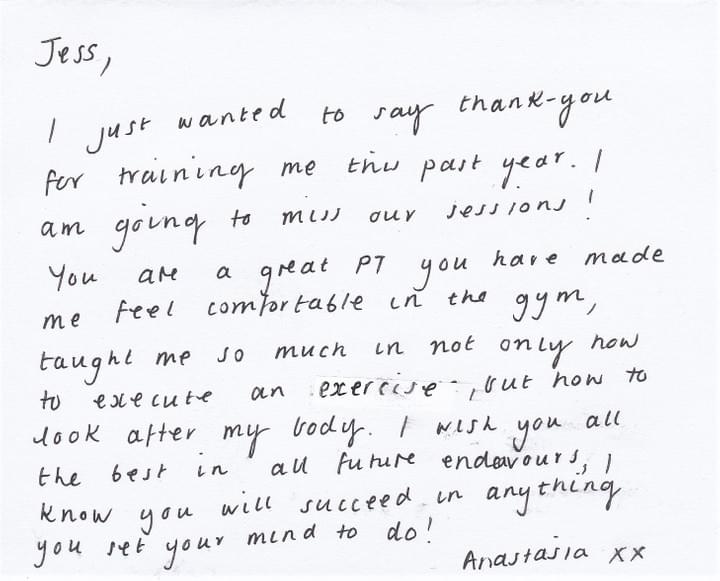 Jess,
I just wanted to say thank-you
for training me this past year. I
am going to miss our sessions!
You are a great PT you have made
me feel comfortable in the gym,
taught me so much in not only how
to execute an exercise, but how to
look after my body. I wish you all
the best in all future endeavours, I
know you will succeed in anything
you set your mind to do!
Anastasia xx